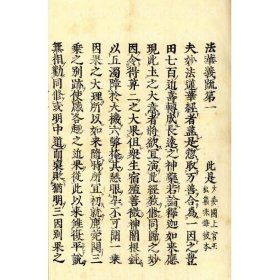 法華義疏第一
此是
大委國上宮王
私集非海彼本
夫妙法蓮華經者蓋是惣取万善合為一因之豊
田七百近壽轉成長遠之神藥若論釋迦如來應
現此土之大意者將欲宜演此經教修同歸之妙
因令得莫二之大果但衆生宿殖善微神闇根鈍
以五濁障於大機六弊掩其慧眼卒不可聞一乘
因果之大理所以如來隨時所宜初就鹿苑開三
乘之別跡使感各趣之近果從此以來雖復平說
無相勸同修或明中道而褒貶猶明三因別果之